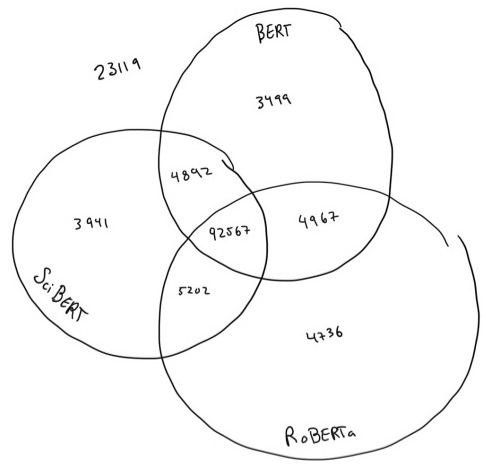 BERT
23119
3499
4892
3941
92567
4967
SciBERT
5202
4736
RoBERTa